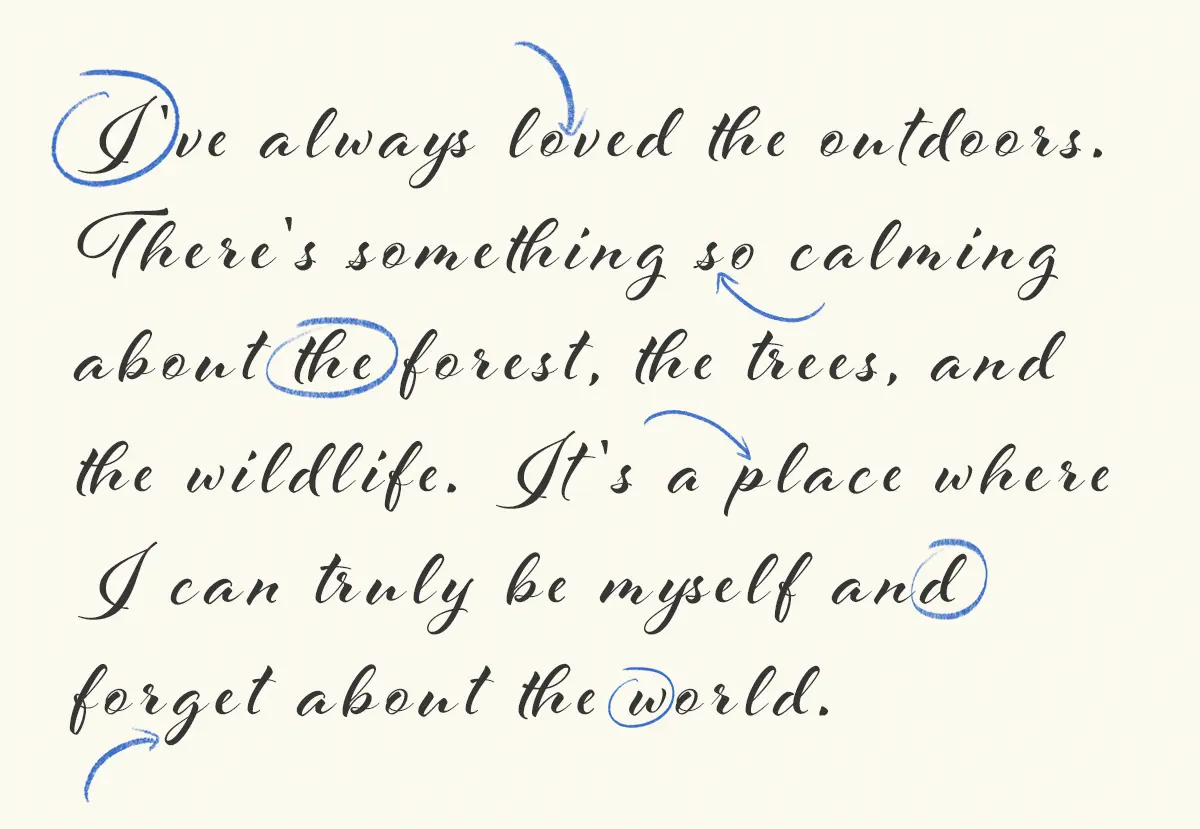 I've always loved the outdoors.
There's something so calming
about the forest, the trees, and
the wildlife. It's a place where
I can truly be myself and
forget about the world.